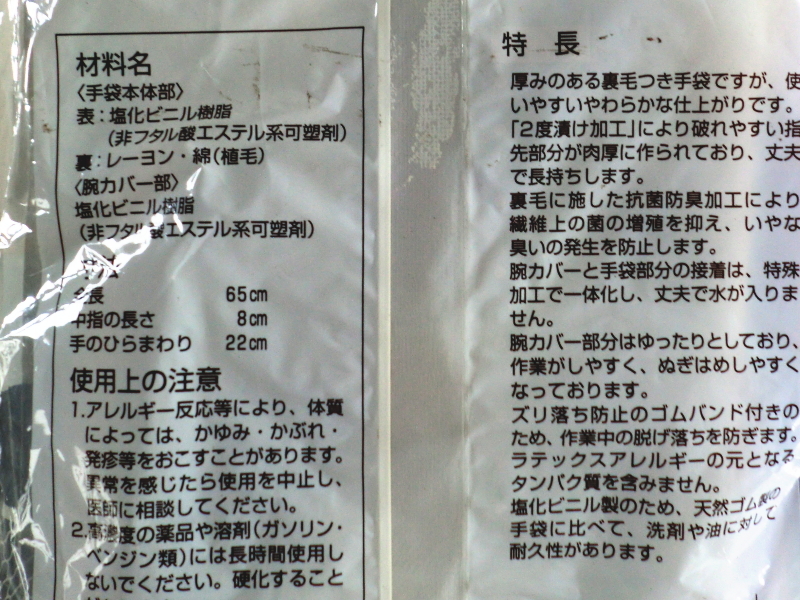 材料名
〈手袋本体部〉
表：塩化ビニル樹脂
(非フタル酸エステル系可塑剤)
裏：レーヨン・綿(植毛)
〈腕カバー部〉
塩化ビニル樹脂
(非フタル酸エステル系可塑剤)
全長 65cm
中指の長さ 8cm
手のひらまわり 22cm
使用上の注意
1.アレルギー反応等により、体質
によっては、かゆみ・かぶれ・
発疹等をおこすことがあります。
異常を感じたら使用を中止し、
医師に相談してください。
2.高濃度の薬品や溶剤(ガソリン・
ベンジン類)には長時間使用し
ないでください。硬化すること
特 長
厚みのある裏毛つき手袋ですが、使
いやすいやわらかな仕上がりです。
「2度漬け加工」により破れやすい指
先部分が肉厚に作られており、丈夫
で長持ちします。
裏毛に施した抗菌防臭加工により
繊維上の菌の増殖を抑え、いやな
臭いの発生を防止します。
腕カバーと手袋部分の接着は、特殊
加工で一体化し、丈夫で水が入りま
せん。
腕カバー部分はゆったりとしており、
作業がしやすく、ぬぎはめしやすく
なっております。
ズリ落ち防止のゴムバンド付きの
ため、作業中の脱げ落ちを防ぎます。
ラテックスアレルギーの元となる
タンパク質を含みません。
塩化ビニル製のため、天然ゴム製の
手袋に比べて、洗剤や油に対して
耐久性があります。